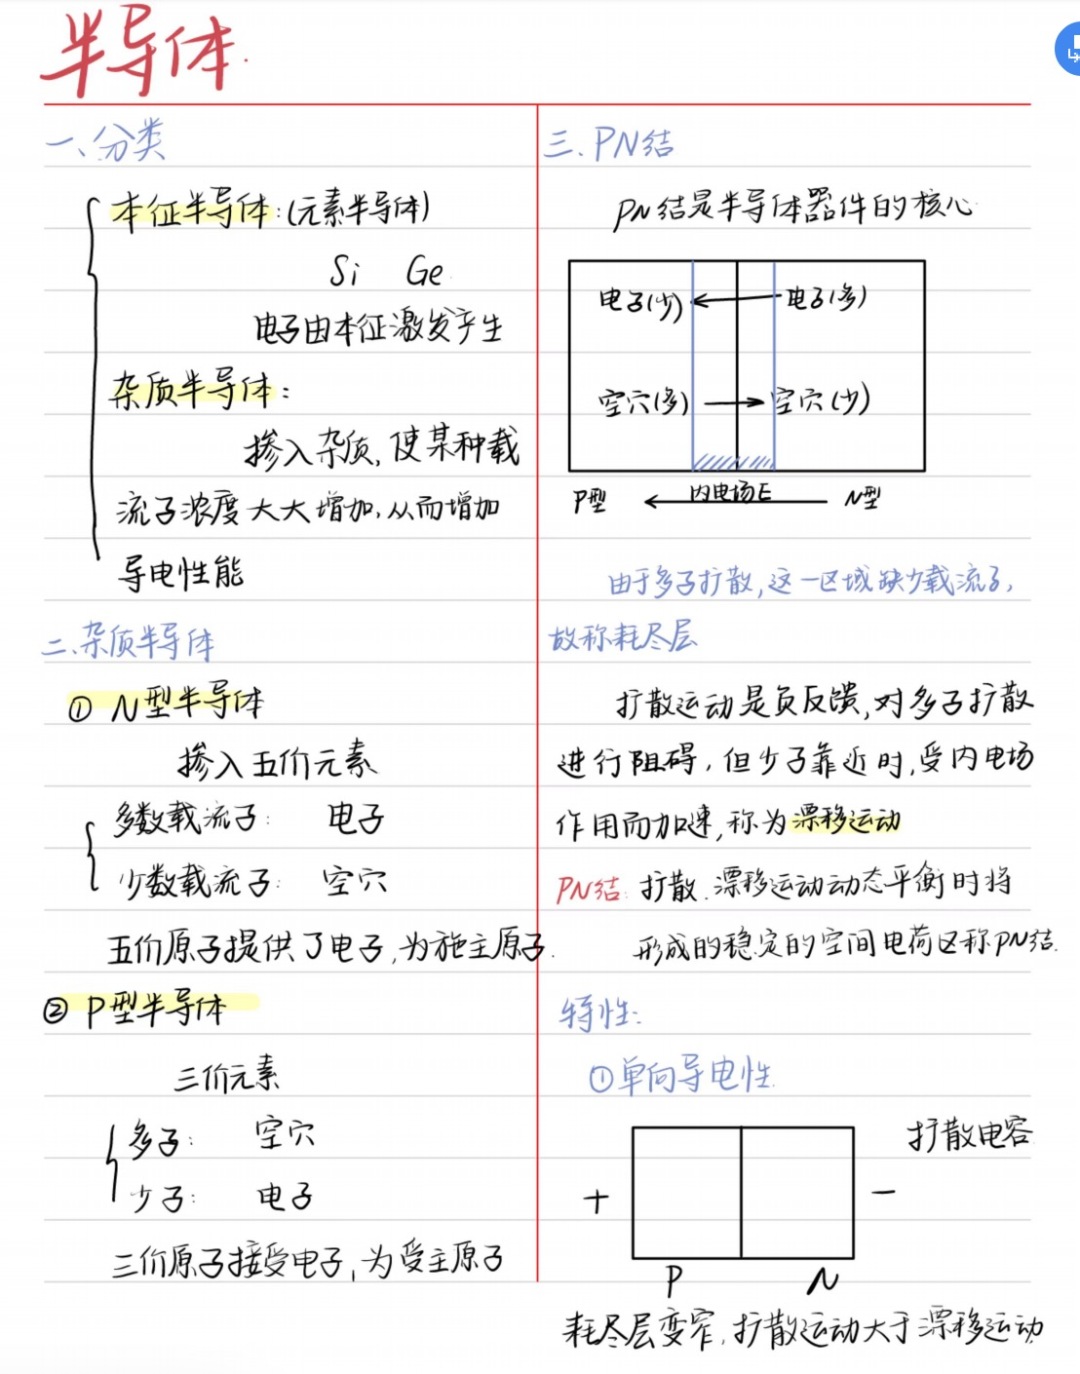 半导体.
一、分类
本征半导体:(元素半导体)
Si Ge
电子由本征激发产生
杂质半导体:
掺入杂质,使某种载
流子浓度大大增加,从而增加
导电性能
二、杂质半导体
① N型半导体
掺入五价元素
多数载流子: 电子
少数载流子: 空穴
五价原子提供了电子,为施主原子.
② P型半导体
三价元素
多子: 空穴
少子: 电子
三价原子接受电子,为受主原子
三.PN结
PN结是半导体器件的核心
电子(少) 电子(多)
空穴(多) 空穴(少)
P型 内电场E N型
由于多子扩散,这一区域缺少载流子,
故称耗尽层
扩散运动是负反馈,对多子扩散
进行阻碍,但少子靠近时,受内电场
作用而加速,称为漂移运动
PN结: 扩散、漂移运动动态平衡时将
形成的稳定的空间电荷区称PN结.
特性:
①单向导电性
扩散电容
+ -
P N
耗尽层变窄,扩散运动大于漂移运动